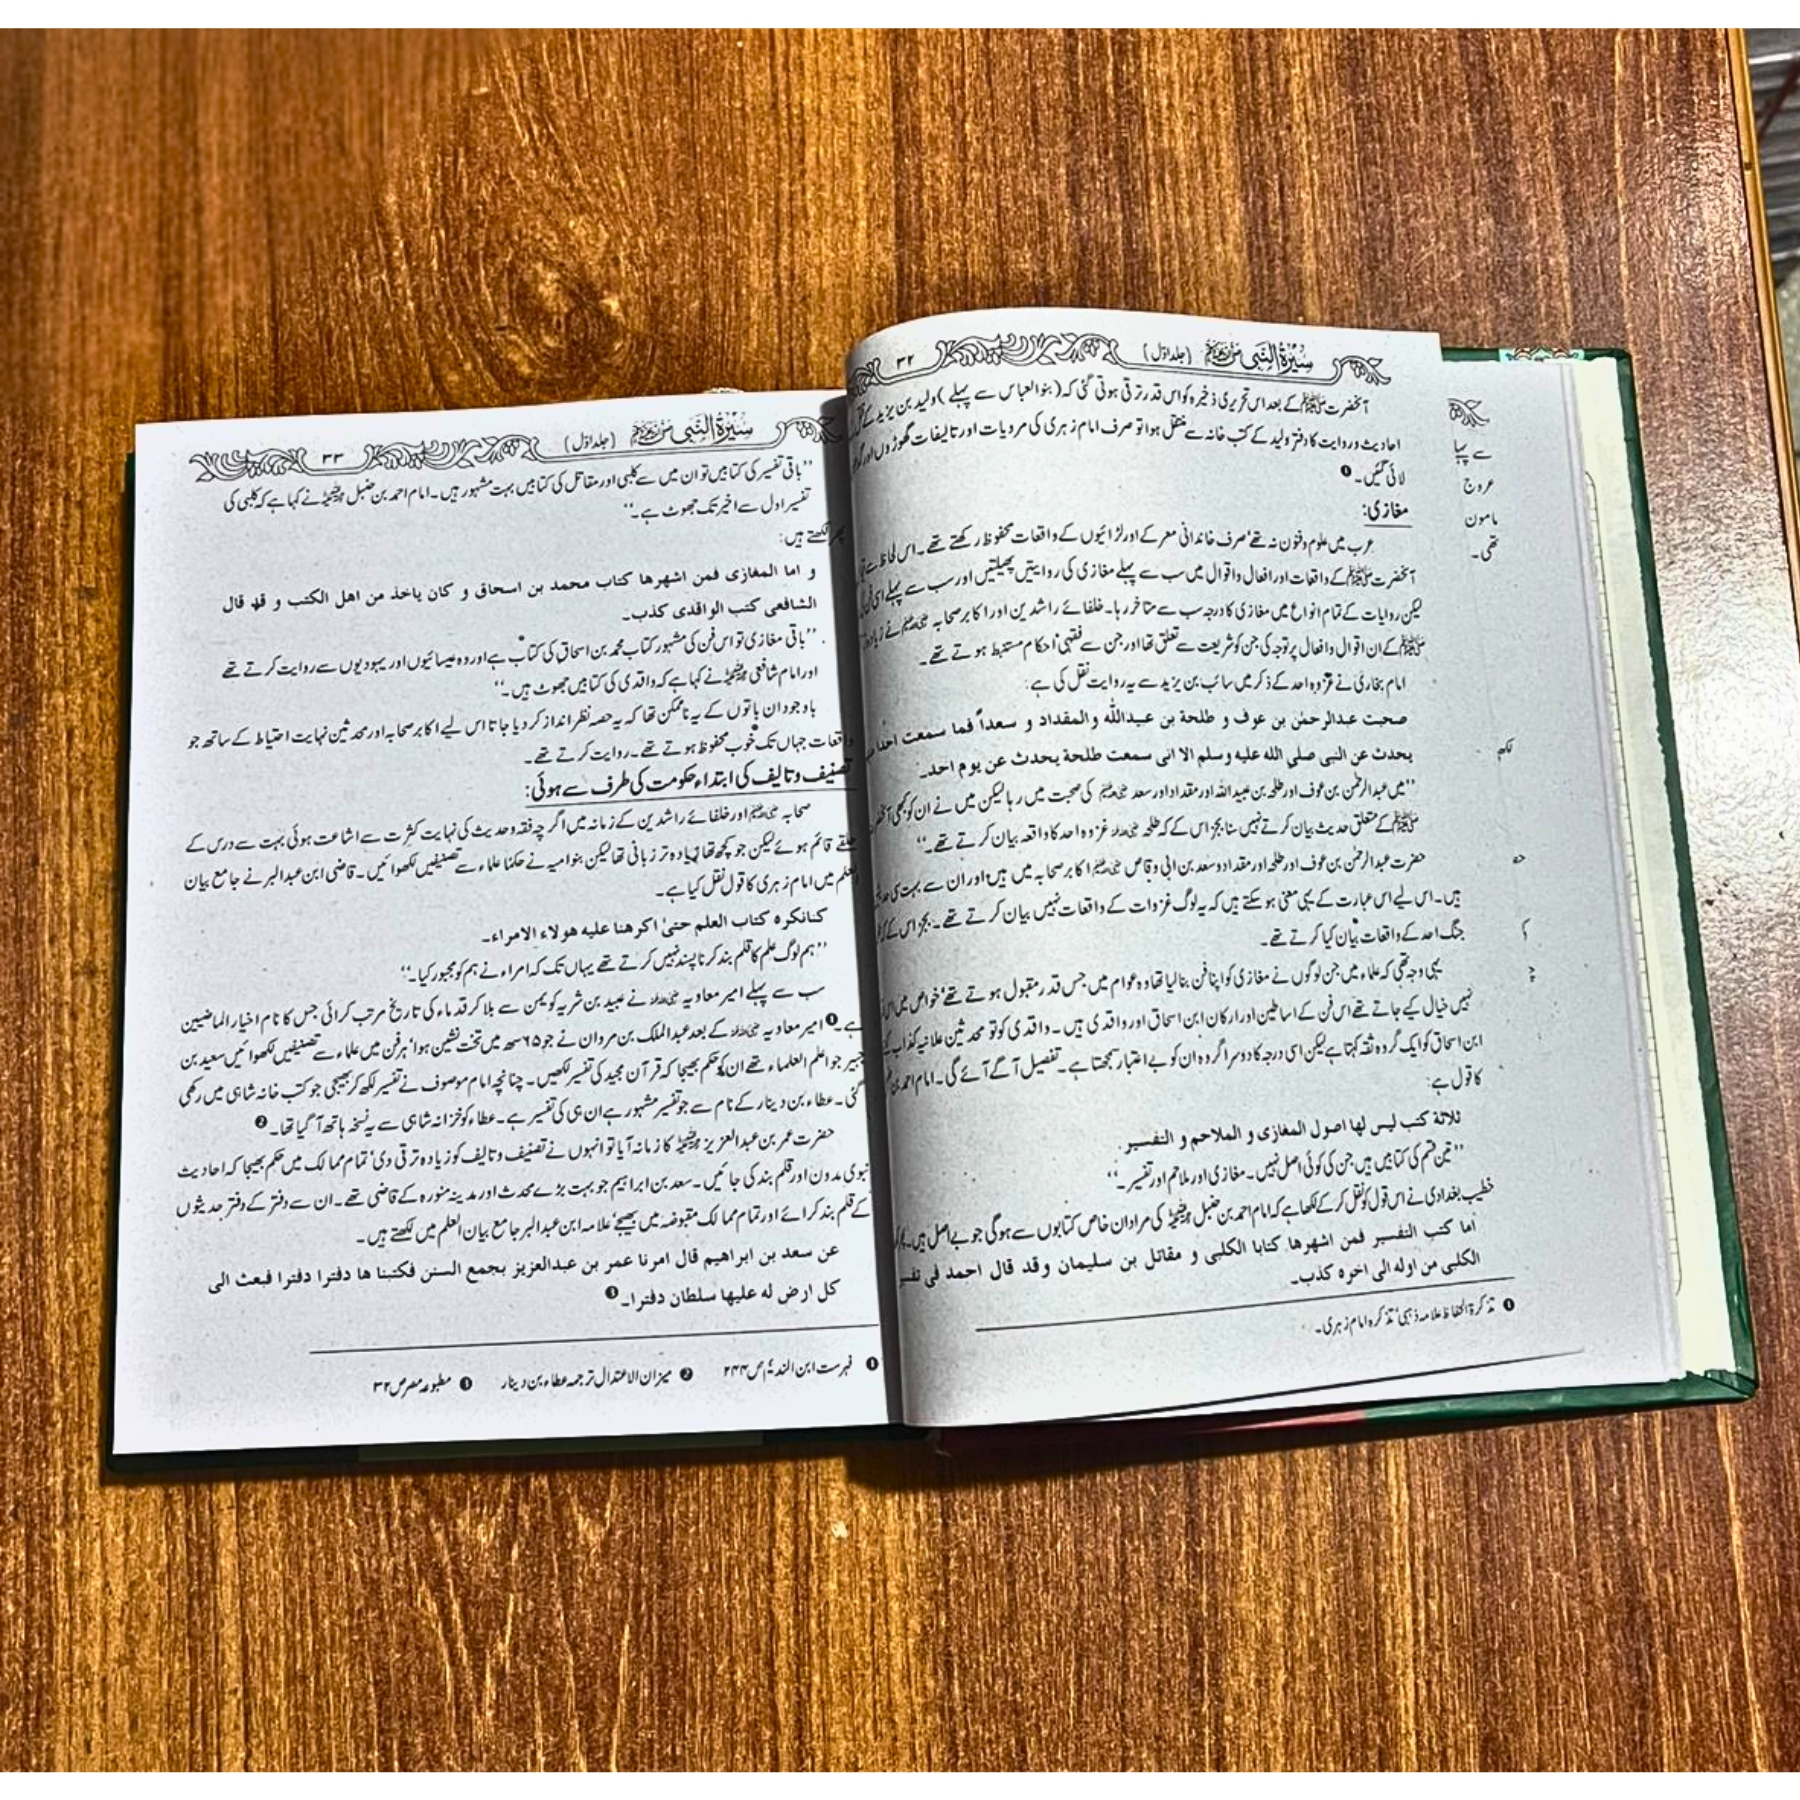 سیرۃ النبی ﷺ (جلد اول) ۳۲
آنحضرت ﷺ کے بعد اس تحریری ذخیرہ کو اس قدر ترقی ہوتی گئی کہ (بنو العباس سے پہلے) ولید بن یزید کے
احادیث و روایت کا دفتر ولید کے کتب خانہ سے منتقل ہوا تو صرف امام زہری کی مرویات اور تالیفات گھوڑوں اور
لائی گئیں۔ ❶
مغازی:
عرب میں علوم و فنون نہ تھے' صرف خاندانی معرکے اور لڑائیوں کے واقعات محفوظ رکھتے تھے۔ اس لحاظ سے
آنحضرت ﷺ کے واقعات اور افعال و اقوال میں سب سے پہلے مغازی کی روایتیں پھیلتیں اور سب سے پہلے اسی فن
لیکن روایات کے تمام انواع میں مغازی کا درجہ سب سے متاخر رہا۔ خلفائے راشدین اور اکابر صحابہ نے
ﷺ کے ان اقوال و افعال پر توجہ کی جن کو شریعت سے تعلق تھا اور جن سے فقہی احکام مستنبط ہوتے تھے۔
امام بخاری نے غزوہ احد کے ذکر میں سائب بن یزید سے یہ روایت نقل کی ہے:
صحبت عبدالرحمٰن بن عوف و طلحة بن عبیداللّٰه والمقداد و سعداً فما سمعت احدا
یحدث عن النبی صلی الله علیه وسلم الا انی سمعت طلحة یحدث عن یوم احد۔
''میں عبدالرحمٰن بن عوف اور طلحہ بن عبید اللہ اور مقداد اور سعد کی صحبت میں رہا لیکن میں نے ان کو کبھی
ﷺ کے متعلق حدیث بیان کرتے نہیں سنا بجز اس کے کہ طلحہ غزوہ احد کا واقعہ بیان کرتے تھے۔''
حضرت عبدالرحمٰن بن عوف اور طلحہ اور مقداد و سعد بن ابی وقاص اکابر صحابہ میں ہیں' اور ان سے بہت کی
ہیں۔ اس لیے اس عبارت کے یہی معنی ہو سکتے ہیں کہ یہ لوگ غزوات کے واقعات نہیں بیان کرتے تھے۔ بجز اس کے
جنگ احد کے واقعات بیان کیا کرتے تھے۔
یہی وجہ تھی کہ علماء میں جن لوگوں نے مغازی کو اپنا فن بنا لیا تھا وہ عوام میں جس قدر مقبول ہوتے تھے' خواص میں اس
نہیں خیال کیے جاتے تھے اس فن کے اساطین اور ارکان ابن اسحاق اور واقدی ہیں۔ واقدی کو تو محدثین علانیہ کذاب
ابن اسحاق کو ایک گروہ ثقہ کہتا ہے لیکن اسی درجہ کا دوسرا گروہ ان کو بے اعتبار سمجھتا ہے۔ تفصیل آگے آئے گی۔ امام احمد
کا قول ہے:
ثلاثة کتب لیس لها اصول المغازی و الملاحم و التفسیر۔
''تین قسم کی کتابیں ہیں جن کی کوئی اصل نہیں۔ مغازی اور ملاحم اور تفسیر۔''
خطیب بغدادی نے اس قول کو نقل کر کے لکھا ہے کہ امام احمد بن حنبل کی مراد ان خاص کتابوں سے ہوگی جو بے اصل ہیں۔
اما کتب التفسیر فمن اشهرها کتابا الکلبی و مقاتل بن سلیمان وقد قال احمد فی
الکلبی من اوله الی اخره کذب۔
❶ تذکرۃ الحفاظ علامہ ذہبی' تذکرہ امام زہری۔
سے پہلے
عروج
مامون
تھی۔
سیرۃ النبی ﷺ (جلد اول) ۳۳
''باقی تفسیر کی کتابیں تو ان میں سے کلبی اور مقاتل کی کتابیں بہت مشہور ہیں۔ امام احمد بن حنبل نے کہا ہے کہ کلبی کی
تفسیر اول سے اخیر تک جھوٹ ہے۔''
پھر لکھتے ہیں:
و اما المغازی فمن اشهرها کتاب محمد بن اسحاق و کان یاخذ من اهل الکتب و قد قال
الشافعی کتب الواقدی کذب۔
''باقی مغازی تو اس فن کی مشہور کتاب محمد بن اسحاق کی کتاب ہے اور وہ عیسائیوں اور یہودیوں سے روایت کرتے تھے
اور امام شافعی نے کہا ہے کہ واقدی کی کتابیں جھوٹ ہیں۔''
باوجود ان باتوں کے یہ ناممکن تھا کہ یہ حصہ نظر انداز کر دیا جاتا اس لیے اکابر صحابہ اور محدثین نہایت احتیاط کے ساتھ جو
واقعات جہاں تک خوب محفوظ ہوتے تھے۔ روایت کرتے تھے۔
تصنیف و تالیف کی ابتداء حکومت کی طرف سے ہوئی:
صحابہ اور خلفائے راشدین کے زمانہ میں اگرچہ فقہ و حدیث کی نہایت کثرت سے اشاعت ہوئی بہت سے درس کے
حلقے قائم ہوئے لیکن جو کچھ تھا زیادہ تر زبانی تھا لیکن بنو امیہ نے حکماً علماء سے تصنیفیں لکھوائیں۔ قاضی ابن عبدالبر نے جامع بیان
العلم میں امام زہری کا قول نقل کیا ہے۔
کنانکره کتاب العلم حتیٰ اکرهنا علیه هولاء الامراء۔
''ہم لوگ علم کا قلم بند کرنا پسند نہیں کرتے تھے یہاں تک کہ امراء نے ہم کو مجبور کیا۔''
سب سے پہلے امیر معاویہ نے عبید بن شریہ کو یمن سے بلا کر قدماء کی تاریخ مرتب کرائی جس کا نام اخبار الماضیین
ہے۔ ❶ امیر معاویہ کے بعد عبدالملک بن مروان نے جو ۶۵ھ میں تخت نشین ہوا' ہر فن میں علماء سے تصنیفیں لکھوائیں سعید بن
جبیر جو اعلم العلماء تھے ان کو حکم بھیجا کہ قرآن مجید کی تفسیر لکھیں۔ چنانچہ امام موصوف نے تفسیر لکھ کر بھیجی جو کتب خانہ شاہی میں رکھی
گئی۔ عطاء بن دینار کے نام سے جو تفسیر مشہور ہے ان ہی کی تفسیر ہے۔ عطاء کو خزانہ شاہی سے یہ نسخہ ہاتھ آ گیا تھا۔ ❷
حضرت عمر بن عبدالعزیز کا زمانہ آیا تو انہوں نے تصنیف و تالیف کو زیادہ ترقی دی' تمام ممالک میں حکم بھیجا کہ احادیث
نبوی مدون اور قلم بند کی جائیں۔ سعد بن ابراہیم جو بہت بڑے محدث اور مدینہ منورہ کے قاضی تھے۔ ان سے دفتر کے دفتر حدیثوں
کے قلم بند کرائے اور تمام ممالک مقبوضہ میں بھیجے' علامہ ابن عبدالبر جامع بیان العلم میں لکھتے ہیں۔
عن سعد بن ابراهیم قال امرنا عمر بن عبدالعزیز بجمع السنن فکتبنا ها دفترا دفترا فبعث الی
کل ارض له علیها سلطان دفترا۔ ❸
❶ فہرست ابن الندیم ص ۲۴۴ ❷ میزان الاعتدال ترجمہ عطاء بن دینار ❸ مطبوعہ مصر ص ۳۲